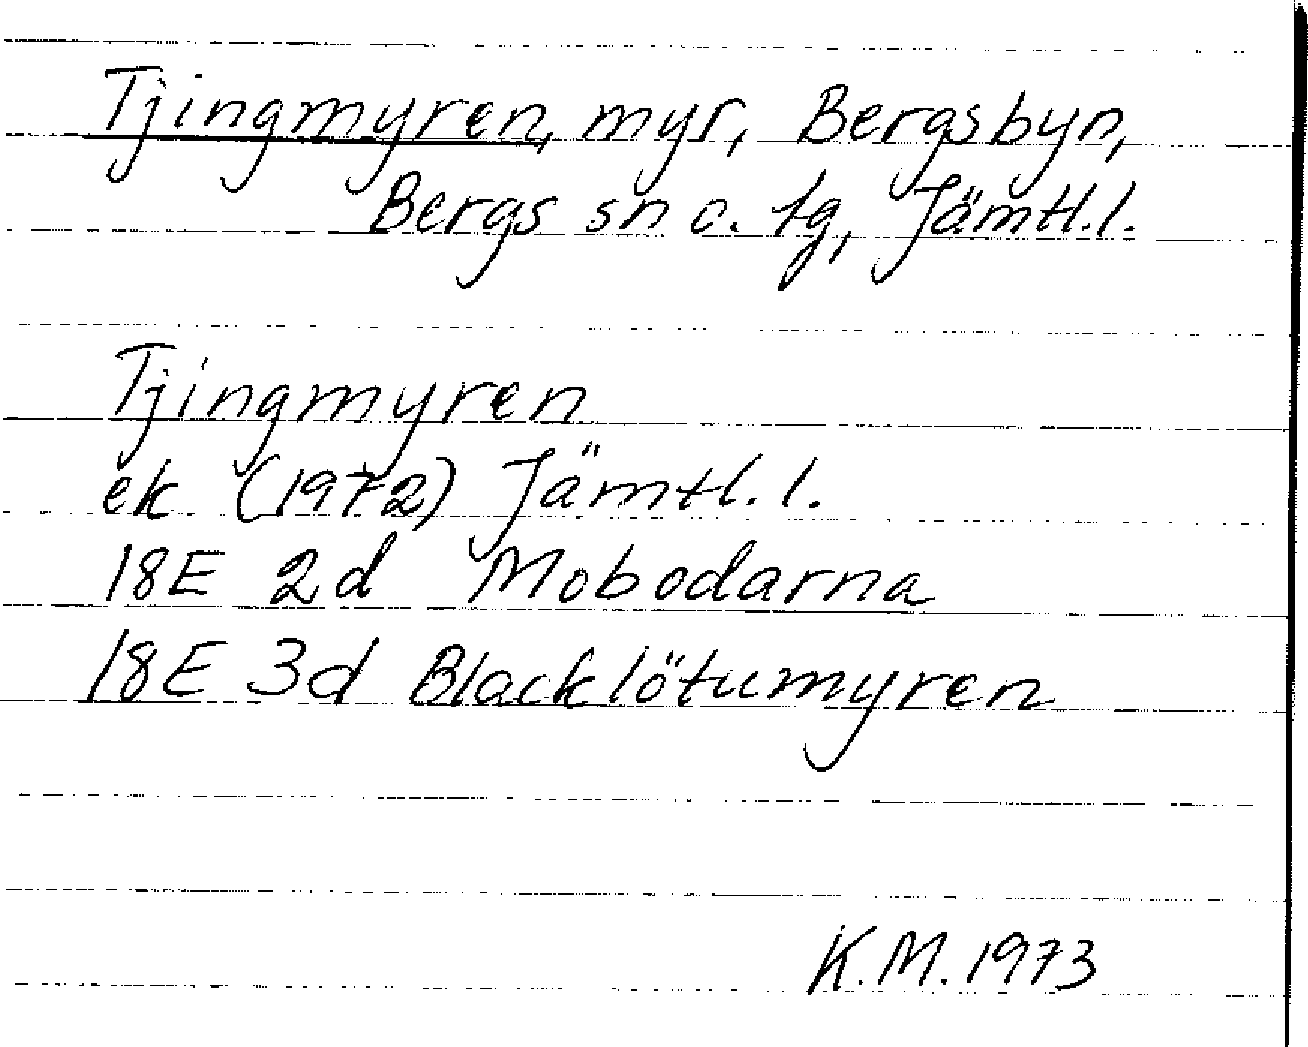 Tjingmyren, myr, Bergsbyn,
Bergs sn o. tg, Jämtl.l.
Tjingmyren
ek (1972) Jämtl.l.
18E 2d Mobodarna
18E 3d Blacklötumyren
K.M. 1973